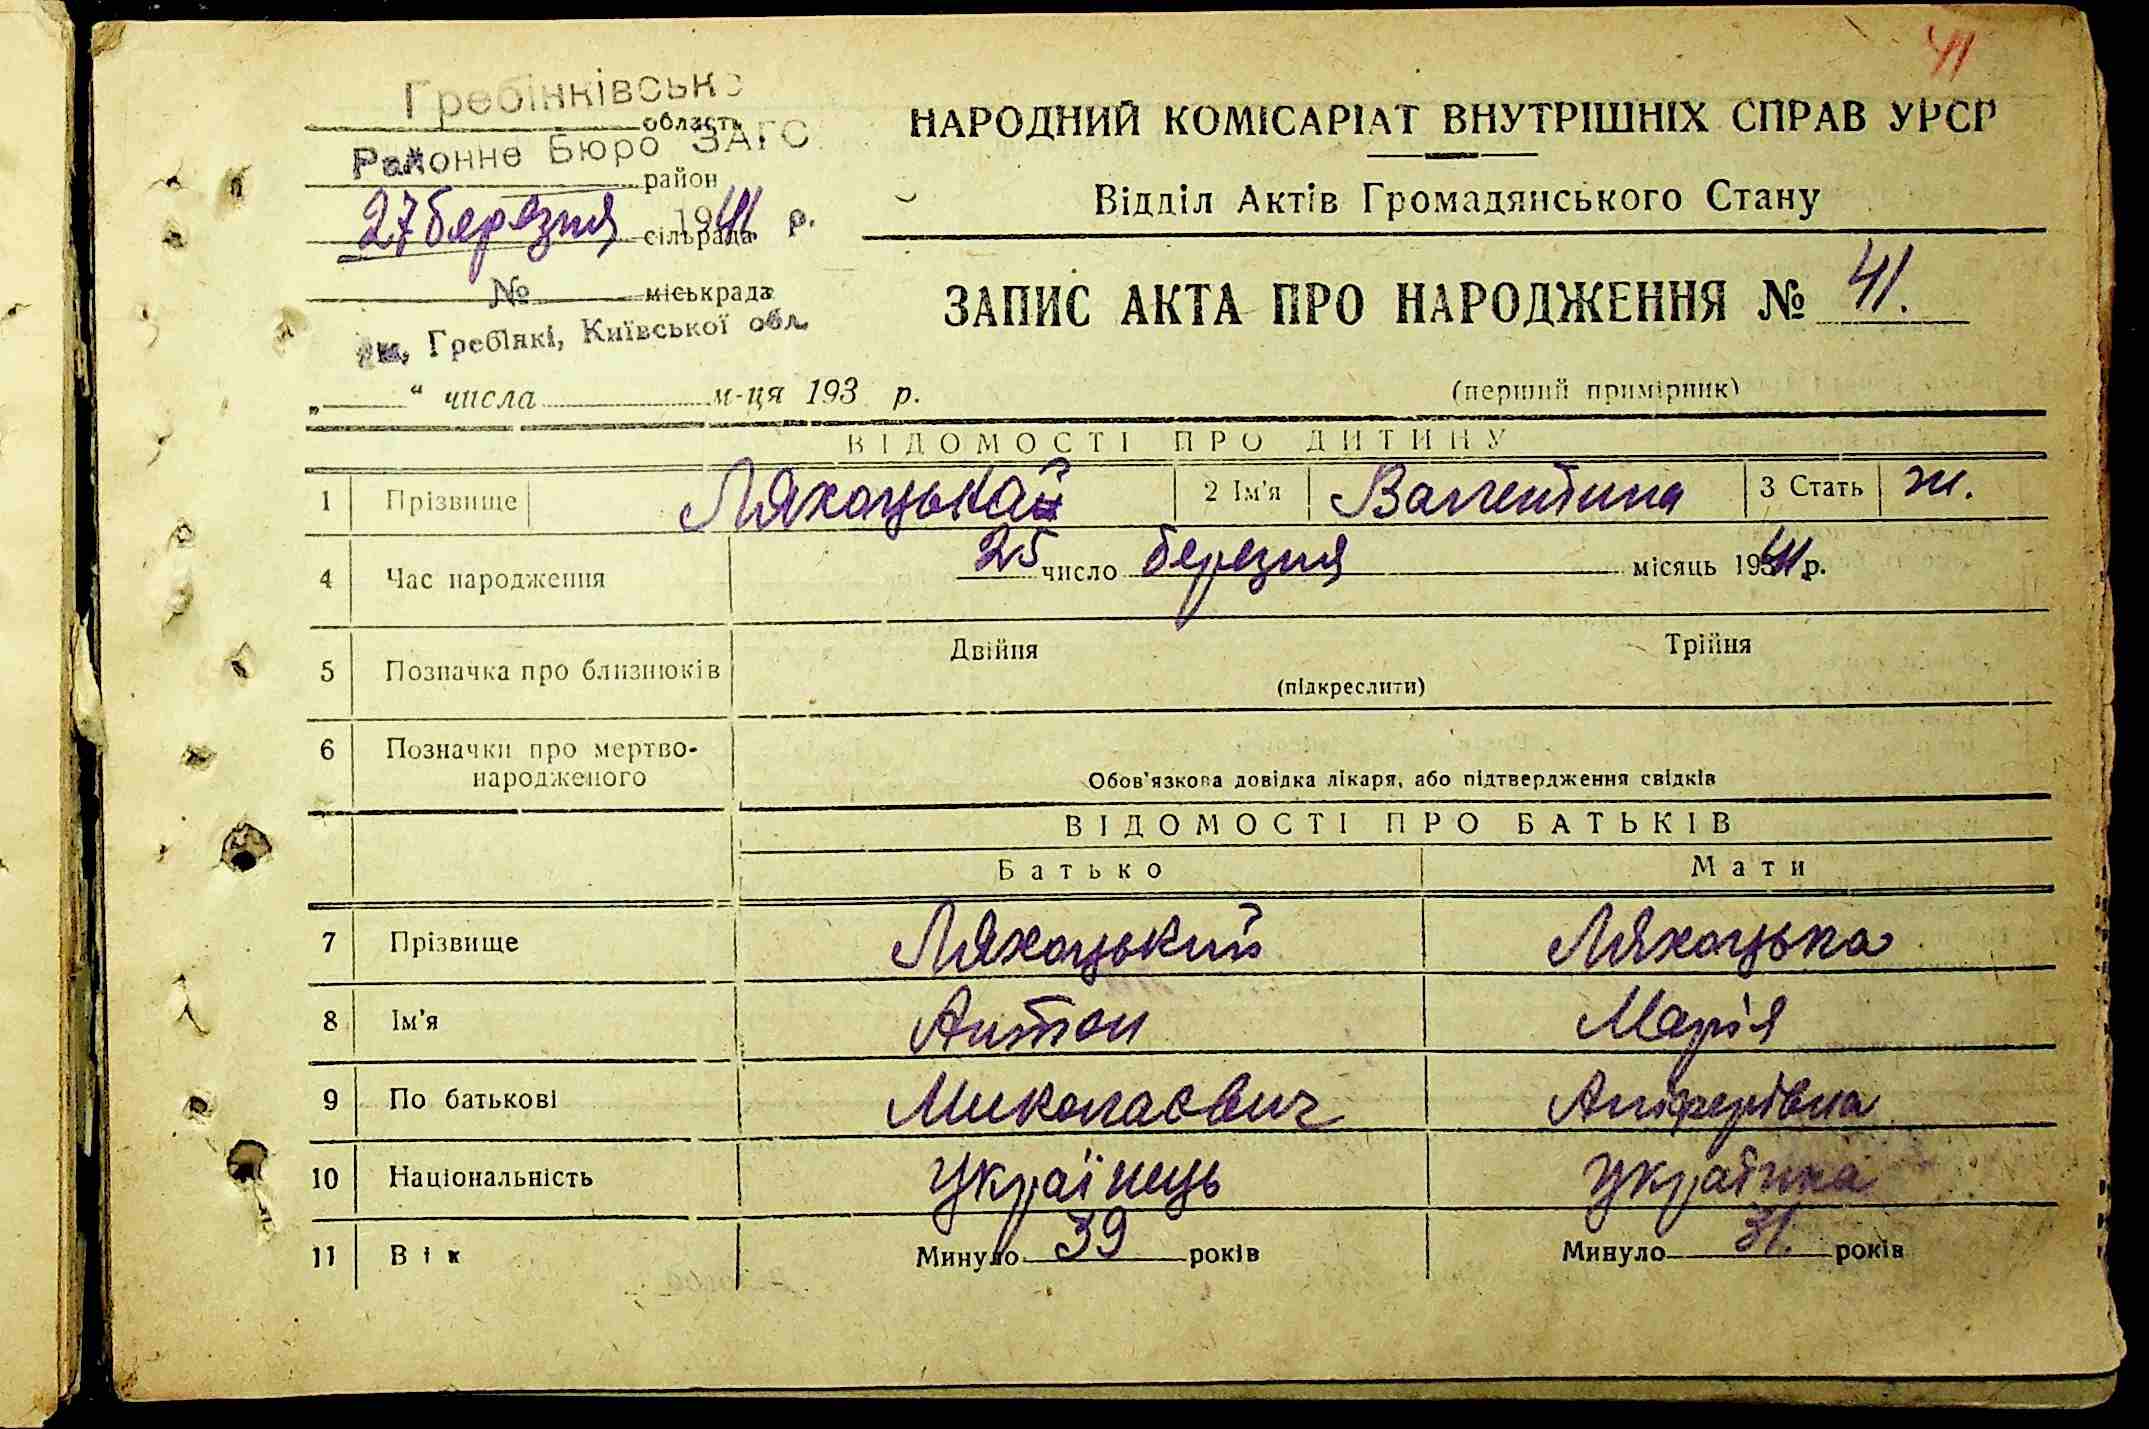 41
Гребінківське
область
Районне Бюро ЗАГС
район
27 березня 1941 р.
сільрада
№ міськрада
Гребінкі, Київської обл.
„ “ числа м-ця 193 р.
НАРОДНИЙ КОМІСАРІАТ ВНУТРІШНІХ СПРАВ УРСР
Відділ Актів Громадянського Стану
ЗАПИС АКТА ПРО НАРОДЖЕННЯ № 41.
(перший примірник)
ВІДОМОСТІ ПРО ДИТИНУ
1 Прізвище Ляхоцька 2 Ім'я Валентина 3 Стать ж.
4 Час народження 25 число березня місяць 1941 р.
5 Позначка про близнюків Двійня Трійня
(підкреслити)
6 Позначки про мертво-
народженого
Обов'язкова довідка лікаря, або підтвердження свідків
ВІДОМОСТІ ПРО БАТЬКІВ
Батько Мати
7 Прізвище Ляхоцький Ляхоцька
8 Ім'я Антон Марія
9 По батькові Миколаєвич Аніферівна
10 Національність Українець Українка
11 Вік Минуло 39 років Минуло 31. років